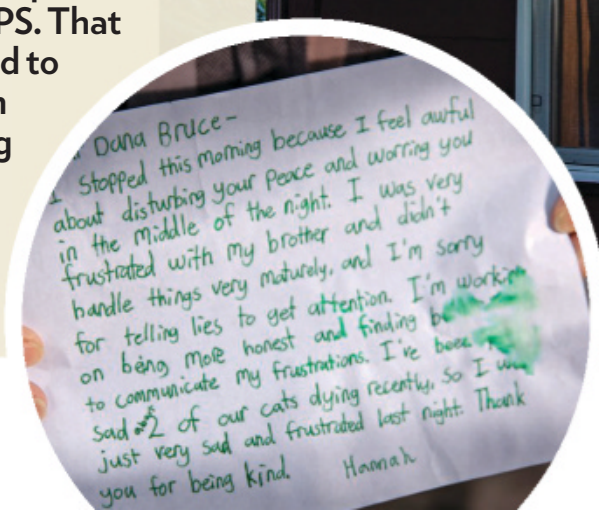 PS. That
d to
g
Dana Bruce-
I stopped this morning because I feel awful
about disturbing your peace and worring you
in the middle of the night. I was very
frustrated with my brother and didn't
handle things very maturely, and I'm sorry
for telling lies to get attention. I'm working
on being more honest and finding
to communicate my frustrations. I've been
sad 2 of our cats dying recently, so I was
just very sad and frustrated last night. Thank
you for being kind. Hannah